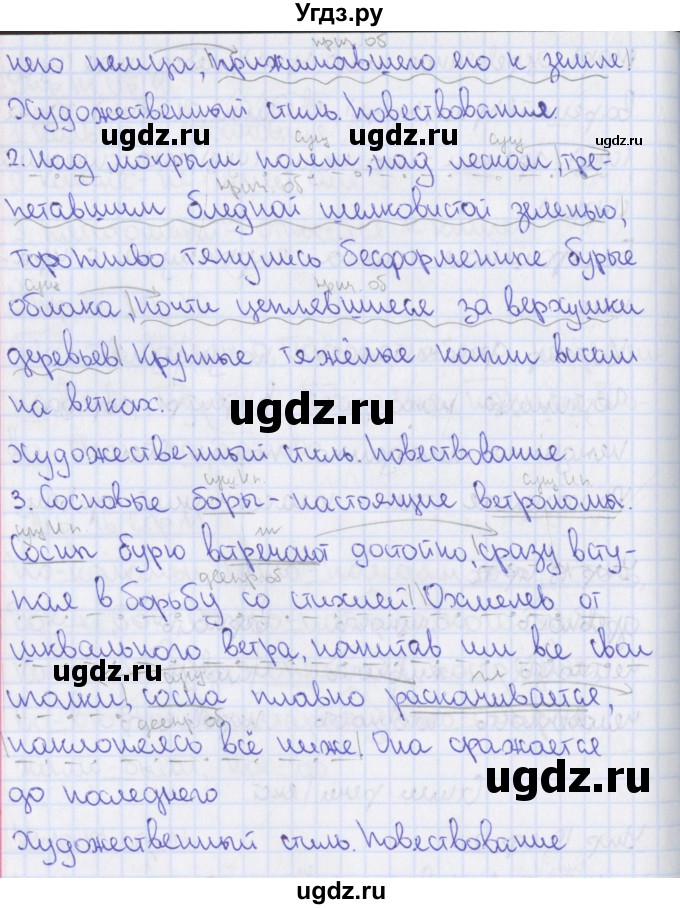 Угдз.ру
прич. об
него немца, прижимавшего его к земле|
Художественный стиль. Повествование.
ugdz.ru ugdz.ru ugdz.ru
сущ сущ
2. Над мокрым полем, над леском|, тре-
прич. об
петавшим бледной шелковистой зеленью|,
торопливо тянулись бесформенные бурые
сущ прич. об
облака,| почти цеплявшиеся за верхушки
деревьев| Крупные тяжёлые капли висели
на ветках.
ugdz.ru
Художественный стиль. Повествование
сущ И.п. сущ И.п.
3. Сосновые боры - настоящие ветроломы.
сущ И.п. гл
Сосны бурю встречают достойно,| сразу всту-
деепр об
пая в борьбу со стихией| |Охмелев от
шквального ветра, напитав им все свои
ugdz.ru
сущ гл
иголки|, сосна плавно раскачивается,
деепр об
|наклоняясь всё ниже| Она сражается
ugdz.ru
до последнего
Художественный стиль. Повествование
ugdz.ru